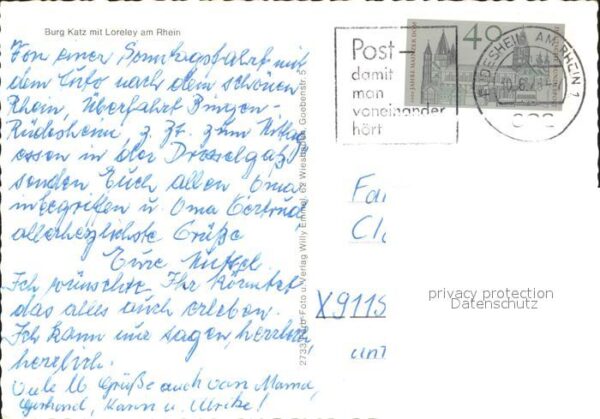 Burg Katz mit Loreley am Rhein
Von einer Sonntagsfahrt mit
dem Auto nach dem schönen
Rhein, Überfahrt Bingen-
Rüdesheim, z. Zt. zum Mittag
essen in der Drosselgaße
senden Euch allen Oma
inbegriffen u. Oma Gertrud
allerherzlichste Grüße
Eure
Ich wünschte Ihr könntet
das alles auch erleben.
Ich kann nur sagen, herrlich
herrlich.
Viele Grüße auch von Mama,
Gerhard, Karin u. Ulrike!
Foto u. Verlag Willy Emmel, 62 Wiesbaden, Goebenstr. 5
Post-
damit
man
voneinander
hört
40
1000 JAHRE MAINZER DOM
RÜDESHEIM AM RHEIN 1
Fa
Cl
X9115
unt
privacy protection
Datenschutz